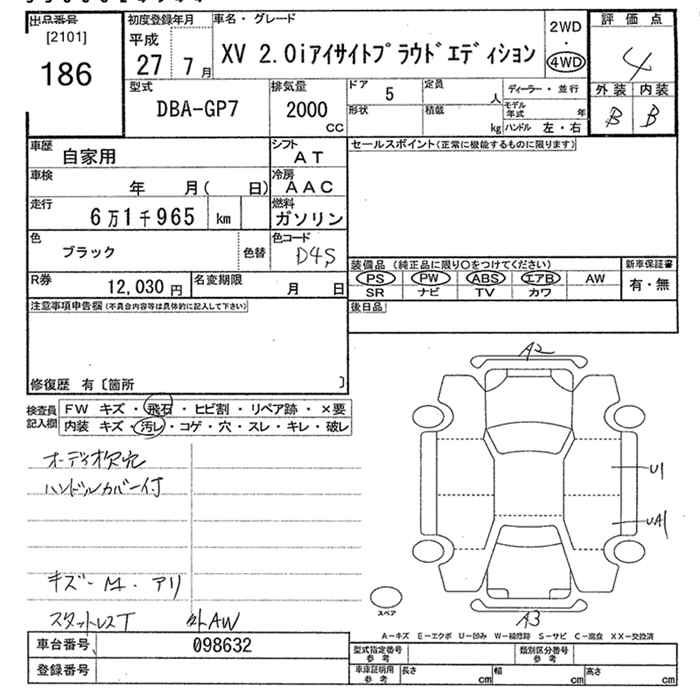 出品番号 初度登録年月 車名・グレード 2WD 評価点
[2101] 平成 ・
186 27年 7月 XV 2.0iアイサイトプラウドエディション 4WD 4
型式 排気量 ドア 5 定員 人 ディーラー・並行 外装 内装
DBA-GP7 2000 cc 形状 積載 kg モデル年式 年 B B
ハンドル 左・右
車歴 自家用 シフト AT セールスポイント(正常に機能するものに限ります)
車検 年 月( 日) 冷房 AAC
走行 6万1千965 km 燃料 ガソリン
色 ブラック 色替 色コード D4S
装備品 (純正品に限り○をつけてください) 新車保証書
R券 12,030円 名変期限 月 日 PS PW ABS エアB AW 有・無
SR ナビ TV カワ
注意事項申告欄(不具合内容等は具体的に記入して下さい) 後日品
修復歴 有〔箇所 〕
検査員記入欄 FW キズ・飛石・ヒビ割・リペア跡・×要
内装 キズ・汚レ・コゲ・穴・スレ・キレ・破レ
A2
オーディオ欠品
ハンドルカバー付
U1
UA1
キズ-M・アリ
スタットレスT 外AW
スペア
A3
A-キズ E-エクボ U-凹み W-補修跡 S-サビ C-腐食 XX-交換済
車台番号 098632 型式指定番号 参考 類別区分番号 参考
登録番号 車庫証明用 参考 長さ cm 幅 cm 高さ cm